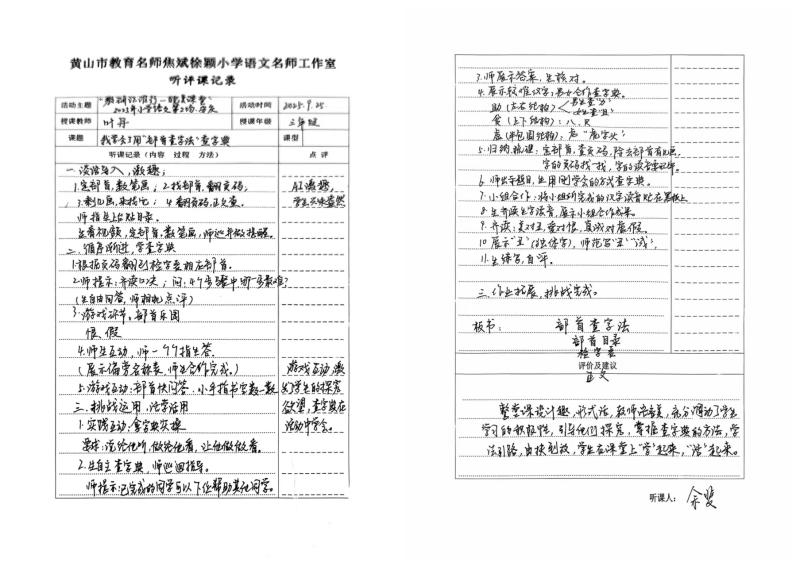 黄山市教育名师焦斌徐颖小学语文名师工作室
听评课记录
活动主题 活动时间 2025.9.25
授课教师 叶丹 授课年级 三年级
课题 我学会了用"部首查字法"查字典 课型
听课记录(内容 过程 方法) 点评
一、谈话导入,激趣;
1.定部首,数笔画;2.找部首,翻页码;
3.剩几画,来找它;4.翻页码,正文查。
师指生上台贴目录。
生看视频,定部首,数笔画,师巡并做提醒。
AI激趣,
学生兴味盎然
二、循序渐进,学查字典
1.根据页码翻到检字表相应部首。
2.师提示:齐读口决;问:4个步骤中哪一步最难?
(生自由回答,师相机点评)
3.游戏环节:部首乐园
恨 假
4.师生互动,师一个个指生答.
(展示偏旁名称表,师生合作完成。)
5.游戏互动:部首快问答,小手指书空数一数
游戏互动,激
发了学生的探究
欲望,查字典在
活动中学会。
三、挑战运用,活学活用
1.实践互动:拿字典实操
要求:说给他听,做给他看,让他做做看。
2.生自主查字典,师巡回指导。
师提示:已完成的同学可以下位帮助其他同学。
3.师展示答案,生核对。
4.展示较难汉字,男女合作查字典。
助(左右结构)
食(上下结构):八、良
虑(半包围结构):虍"虎字头"
5.归纳梳理:定部首,查页码,除去部首有几画,
字的页码找一找,字的读音要记牢。
6.师出示题目,生用刚学会的方式查字典。
7.小组合作:将小组研究成的汉字读音贴在黑板上
8.生齐读生字读音,展示小组合作成果。
11.生练写,自评。
三、作业拓展,挑战完成。
板书: 部首查字法
部首目录
检字表
评价及建议
正文
整堂课设计趣,形式活,教师语言美,充分调动了学生
学习的积极性,引导他们探究,掌握查字典的方法,学
法引路,由扶到放,学生在课堂上"学"起来,"活"起来。
听课人: